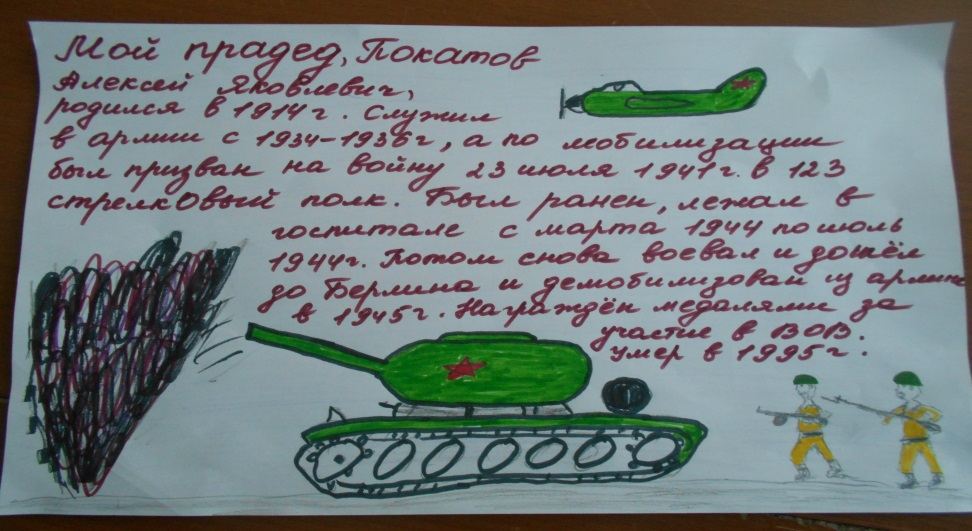 Мой прадед, Покатов
Алексей Яковлевич,
родился в 1914г. Служил
в армии с 1934-1936г, а по мобилизации
был призван на войну 23 июля 1941г. в 123
стрелковый полк. Был ранен, лежал в
госпитале с марта 1944 по июль
1944г. Потом снова воевал и дошёл
до Берлина и демобилизован из армии
в 1945г. Награждён медалями за
участие в ВОВ.
умер в 1995г.